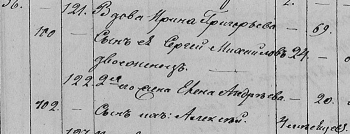 56. 121. Вдова Ирина Григорьева — 69.
100 Сынъ ея Сергей Михайловъ 24.
двоеженецъ
122. 2я его жена Елена Андреева — 20.
102. Сынъ ихъ: Алексей. 4 месяцевъ